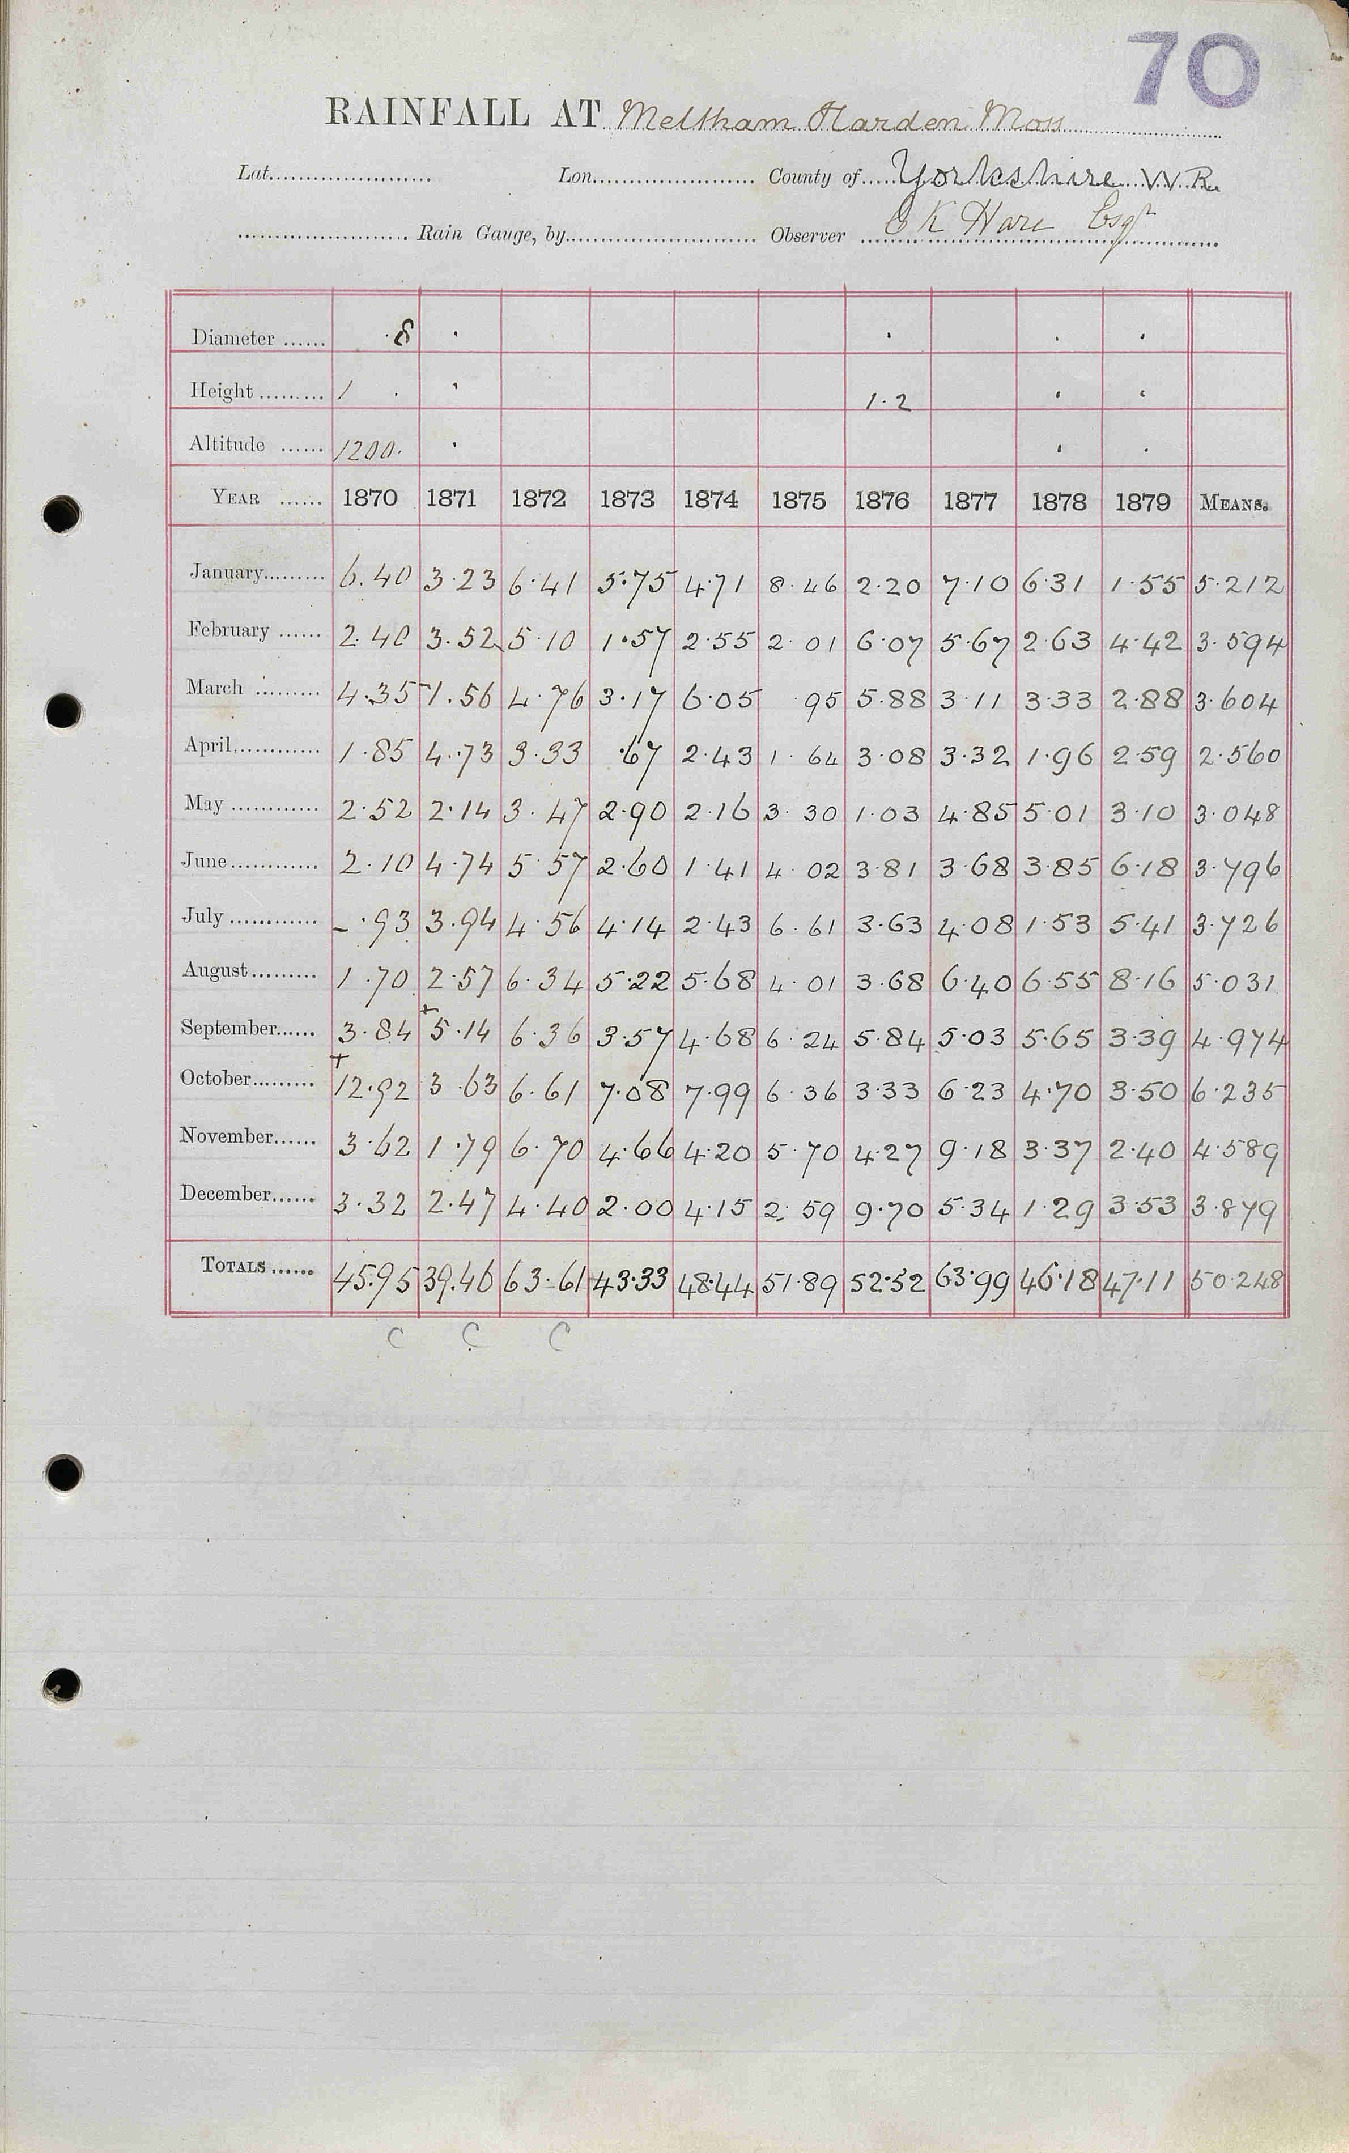 70
RAINFALL AT Meltham Harden Moss
Lat. Lon. County of Yorkshire W R.
Rain Gauge, by Observer C K Hare Esqr
Diameter ...... ·8
Height ......... 1 1·2
Altitude ...... 1200.
YEAR ...... 1870 1871 1872 1873 1874 1875 1876 1877 1878 1879 MEANS.
January......... 6.40 3·23 6·41 5·75 4·71 8·46 2·20 7·10 6·31 1·55 5·212
February ...... 2.40 3·52 5·10 1·57 2·55 2·01 6·07 5·67 2·63 4·42 3·594
March ......... 4.35 1.56 4·76 3·17 6·05 95 5·88 3·11 3·33 2·88 3·604
April............ 1·85 4·73 3·33 ·67 2·43 1·64 3·08 3·32 1·96 2·59 2·560
May ............ 2·52 2·14 3·47 2·90 2·16 3·30 1·03 4·85 5·01 3·10 3·048
June............ 2·10 4·74 5·57 2·60 1·41 4·02 3·81 3·68 3·85 6·18 3·796
July ............ – ·93 3.94 4·56 4·14 2·43 6·61 3·63 4·08 1·53 5·41 3·726
August......... 1·70 2·57 6·34 5·22 5·68 4·01 3·68 6·40 6·55 8·16 5·031
September...... 3·84 +5·14 6·36 3·57 4·68 6·24 5·84 5·03 5·65 3·39 4·974
October......... +12·92 3·63 6·61 7·08 7·99 6·36 3·33 6·23 4·70 3·50 6·235
November...... 3·62 1·79 6·70 4·66 4·20 5·70 4·27 9·18 3·37 2·40 4·589
December...... 3·32 2·47 4·40 2·00 4·15 2·59 9·70 5·34 1·29 3·53 3·879
TOTALS ...... 45.95 39.46 63·61 43·33 48·44 51·89 52·52 63·99 46·18 47·11 50·248
C C C